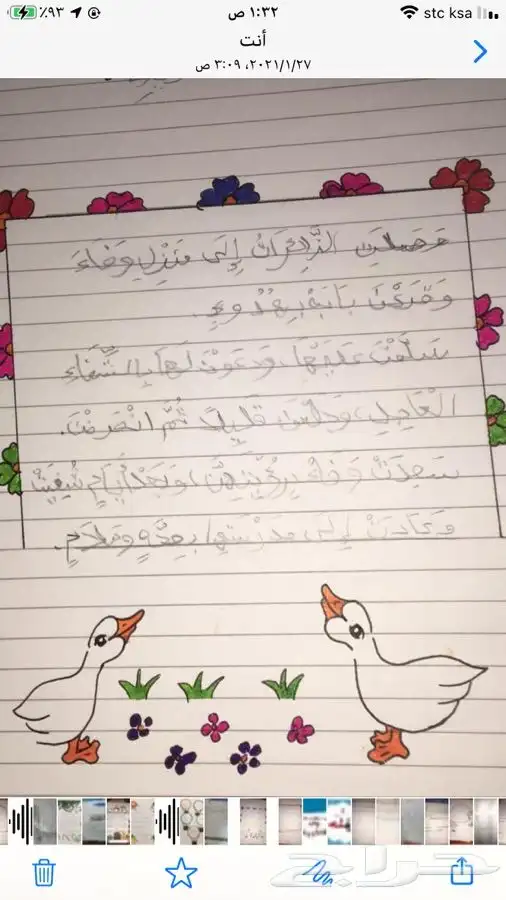 ١:٣٢ ص
stc ksa
٪٩٣
أنت
٢٠٢١/١/٢٧، ٣:٠٩ ص
الزَّائِرَاتُ إِلَى مَنْزِلِ وَفَاءَ
وَقَرَعْنَ بَابَهُ بِهُدُوءٍ.
سَلَّمْنَ عَلَيْهَا، وَدَعَوْنَ لَهَا بِالشِّفَاءِ
الْعَاجِلِ، وَجَلَسْنَ قَلِيلًا ثُمَّ انْصَرَفْنَ.
سَعِدَتْ وَفَاءُ بِرُؤْيَتِهِنَّ، وَبَعْدَ أَيَّامٍ شُفِيَتْ
وَعَادَتْ إِلَى مَدْرَسَتِهَا بِصِحَّةٍ وَسَلَامٍ.
حراج